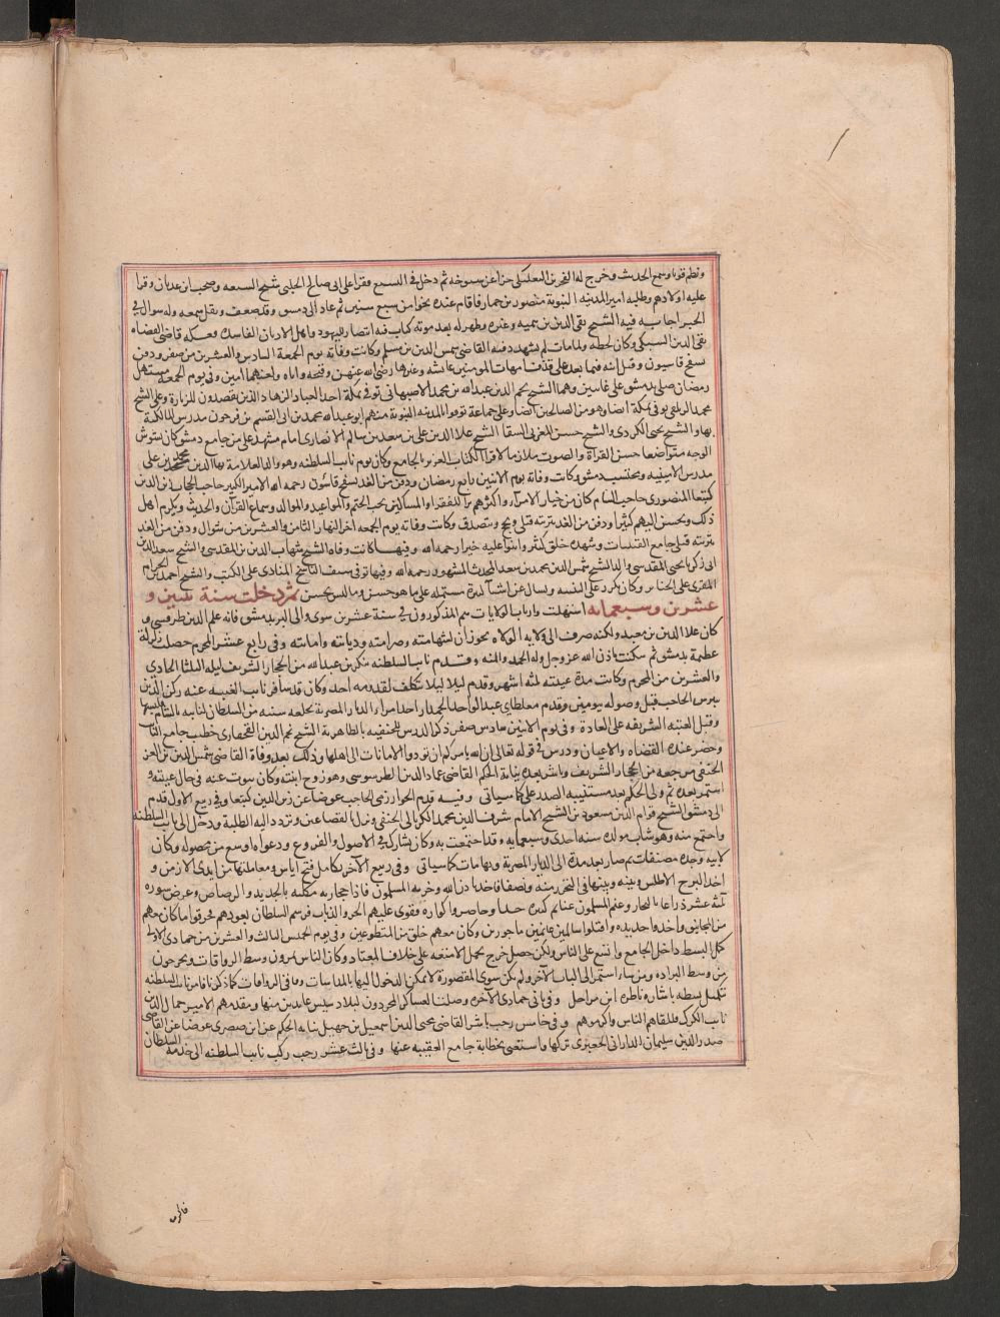 ونظم قويا وسمع الحديث وخرج له الفخر بن البعلبكي جزا عن شيوخه ثم دخل في التشيع فقرا على ابي صالح الحلي شيخ الشيعه وصحب ابن عدنان وقرا
عليه اولادهم وطلبه امير المدينه النبويه منصور بن جماز فاقام عنده نحوا من سبع سنين ثم عاد الى دمشق وقد ضعف وثقل سمعه وله سوال في
الجبر اجابه فيه الشيخ تقي الدين بن تيميه وغيره وظهر له بعد موته كتاب فيه انتصار لليهود واهل الاديان الفاسده وغسله قاضي القضاه
تقي الدين السبكي وكان بخطه ولما مات لم يشهد دفنه القاضي شمس الدين بن مسلم وكانت وفاته يوم الجمعة السادس والعشرين من صفر ودفن
بسفح قاسيون وقتل ابنه فيما بعد على قذفه امهات المومنين عايشه وغيرها رضي الله عنهن وقبحه واباه ولعنهما امين وفي يوم الجمعه مستهل
رمضان صلي بدمشق على غايبين وهما الشيخ نجم الدين عبد الله بن محمد الاصبهاني توفي بمكة احد العباد الزهاد الذين يقصدون للزيارة وعلى الشيخ
توفي بمكة ايضا وهو من الصالحين ايضا وعلى جماعة توفوا بالمدينه النبوية منهم ابو عبد الله محمد بن ابي القسم بن فرحون مدرس المالكية
بها والشيخ يحيى الكردي والشيخ حسن المغربي السقا الشيخ علا الدين علي بن سعد بن سالم الانصاري امام مشهد علي من جامع دمشق كان بشوش
الوجه متواضعا حسن القراة والصوت ملازما لاقرا الكتاب العزيز بالجامع وكان يوم نايب السلطنه وهو والد العلامة بها الدين محمد بن علي
مدرس الامينيه ومحتسب دمشق وكانت وفاته يوم الاثنين رابع رمضان ودفن من الغد بسفح قاسيون رحمه الله الامير الكبير حاجب الحجاب زين الدين
كتبغا المنصوري حاجب الشام كان من خيار الامرآء واكثرهم برا للفقرا والمساكين يحب الختم والمواعيد والموالد وسماع القرآن والحديث ويكرم اهل
ذلك ويحسن اليهم كثيرا ودفن من الغد بتربته قبلي ويحج ويتصدق وكانت وفاته يوم الجمعه اخر النهار الثامن والعشرين من شوال ودفن من الغد
بتربته قبلي جامع القبيبات وشهده خلق كثير واثنوا عليه خيرا رحمه الله وفيها كانت وفاة الشيخ شهاب الدين بن المقدسي والشيخ سعد الدين
ابي زكريا يحيى المقدسي والد الشيخ شمس الدين محمد بن سعد المحدث المشهور رحمه الله وفيها توفي سيف الناسخ المنادي على الكتب والشيخ احمد بن الحرام
المقري على الجنايز وكان يكرر على التنبيه ويسال عن اشيا كثيرة مشتمله على ما هو حسن وما ليس بحسن ثم دخلت سنة ثنتين و
عشرين وسبعمايه استهلت وارباب الولايات هم المذكورون في سنة عشرين سوى والي البر بدمشق فانه علم الدين طرقشي و
كان علا الدين بن معبد ولكنه صرف الى ولايه الولاه بحوران لشهامته وصرامته وديانته وامانته وفي رابع عشر المحرم حصلت زلزلة
عظيمة بدمشق ثم سكنت باذن الله عز وجل وله الحمد والمنه وقدم نايب السلطنه تنكز بن عبد الله من الحجاز الشريف ليله الثلثا الحادي
والعشرين من المحرم وكانت مدة غيبته ثلثه اشهر وقدم ليلا ليلا يتكلف لقدومه احد وكان قد سافر نايب الغيبه عنه ركن الدين
بيبرس الحاجب قبل وصوله بيومين وقدم مغلطاي عبد الواحد الجمدار احد امرا الديار المصرية بخلعه سنيه من السلطان لنايبه بالشام
وقبل العتبه الشريفه على العادة وفي يوم الاثنين سادس صفر ذكر الدرس للحنفيه بالظاهرية الشيخ نجم الدين القحفازي خطيب جامع تنكز
وحضر عنده القضاه والاعيان ودرس في قوله تعالى ان الله يامركم ان تودوا الامانات الى اهلها وذلك بعد وفاة القاضي شمس الدين بن العز
الحنفي مرجعه من الحجاز الشريف وباشر بعده نيابة الحكم القاضي عماد الدين الطرسوسي وهو زوج ابنته وكان ينوب عنه في حال غيبته و
استمر بعده ثم ولي الحكم بعد مستنيبه الصدر علي كما سياتي وفيه قدم الخوارزمي الحاجب عوضا عن زين الدين كتبغا وفي ربيع الاول قدم
الى دمشق الشيخ قوام الدين مسعود بن الشيخ الامام شرف الدين محمد الكرماني الحنفي ونزل بالقصاعين وتردد اليه الطلبة ودخل الى نايب السلطنه
واجتمع منه وهو شاب مولده سنه احدى وسبعمايه وقد اجتمعت به وكان يشارك في الاصول والفروع ودعواه اوسع من محصوله وكان
لابيه وجده مصنفات ثم صار بعد مدة الى الديار المصرية وبها مات كما سياتي وفي ربيع الآخر تكامل فتح اياس ومعاملتها من ايدي الارمن و
اخذ البرج الاطلس وبينه وبينها في البحر رمية ونصف فاخذ باذن الله وخربه المسلمون فاذا حجارته مكلبه بالحديد والرصاص وعرض سوره
ثلثة عشر ذراعا بالنجار وغنم المسلمون غنايم كثيرة جدا وحاصروا كواره فقوي عليهم الحر والذباب فرسم السلطان بعودهم فحرقوا ما كان معهم
من المجانيق واخذوا حديدها واقبلوا سالمين غانمين ماجورين وكان معهم خلق من المتطوعين وفي يوم الخميس الثالث والعشرين من جمادى الاولى
كمل البسط داخل الجامع واتسع على الناس ولكن حصل خرج بحمل الامتعه على خلاف المعتاد وكان الناس يمرون وسط الرواقات ويخرجون
من وسط البراده ومن شاء استمر الى الباب الآخر ولم يكن سوى المقصورة لا يمكن الدخول اليها بالمداسات وما في الرواقات كما ذكرنا فامر نايب السلطنه
بتكميل بسطه باشاره ناظره ابن مراجل وفي ثاني جمادى الآخرة وصلت العساكر المجردون لبلاد سيس عايدين منها ومقدمهم الامير جمال الدين
نايب الكرك فتلقاهم الناس واكرموهم وفي خامس رجب باشر القاضي محيى الدين اسمعيل بن جهبل نيابه الحكم عن ابن صصرى عوضا عن القاضي
صدر الدين سليمان الداراني الجعفري تركها واستغنى بخطابة جامع العقيبه عنها وفي ثالث عشر رجب ركب نايب السلطنه الى خدمة السلطان
فاكرم